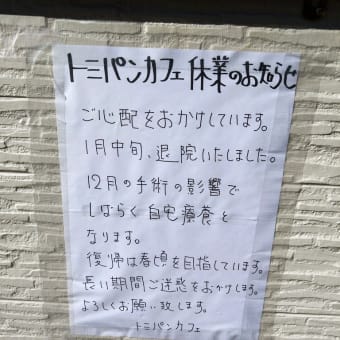 トミパンカフェ休業のお知らせ
ご心配をおかけしています。
1月中旬、退院いたしました。
12月の手術の影響で
しばらく自宅療養と
なります。
復帰は春頃を目指しています。
長い期間ご迷惑をおかけします。
よろしくお願い致します。
トミパンカフェ